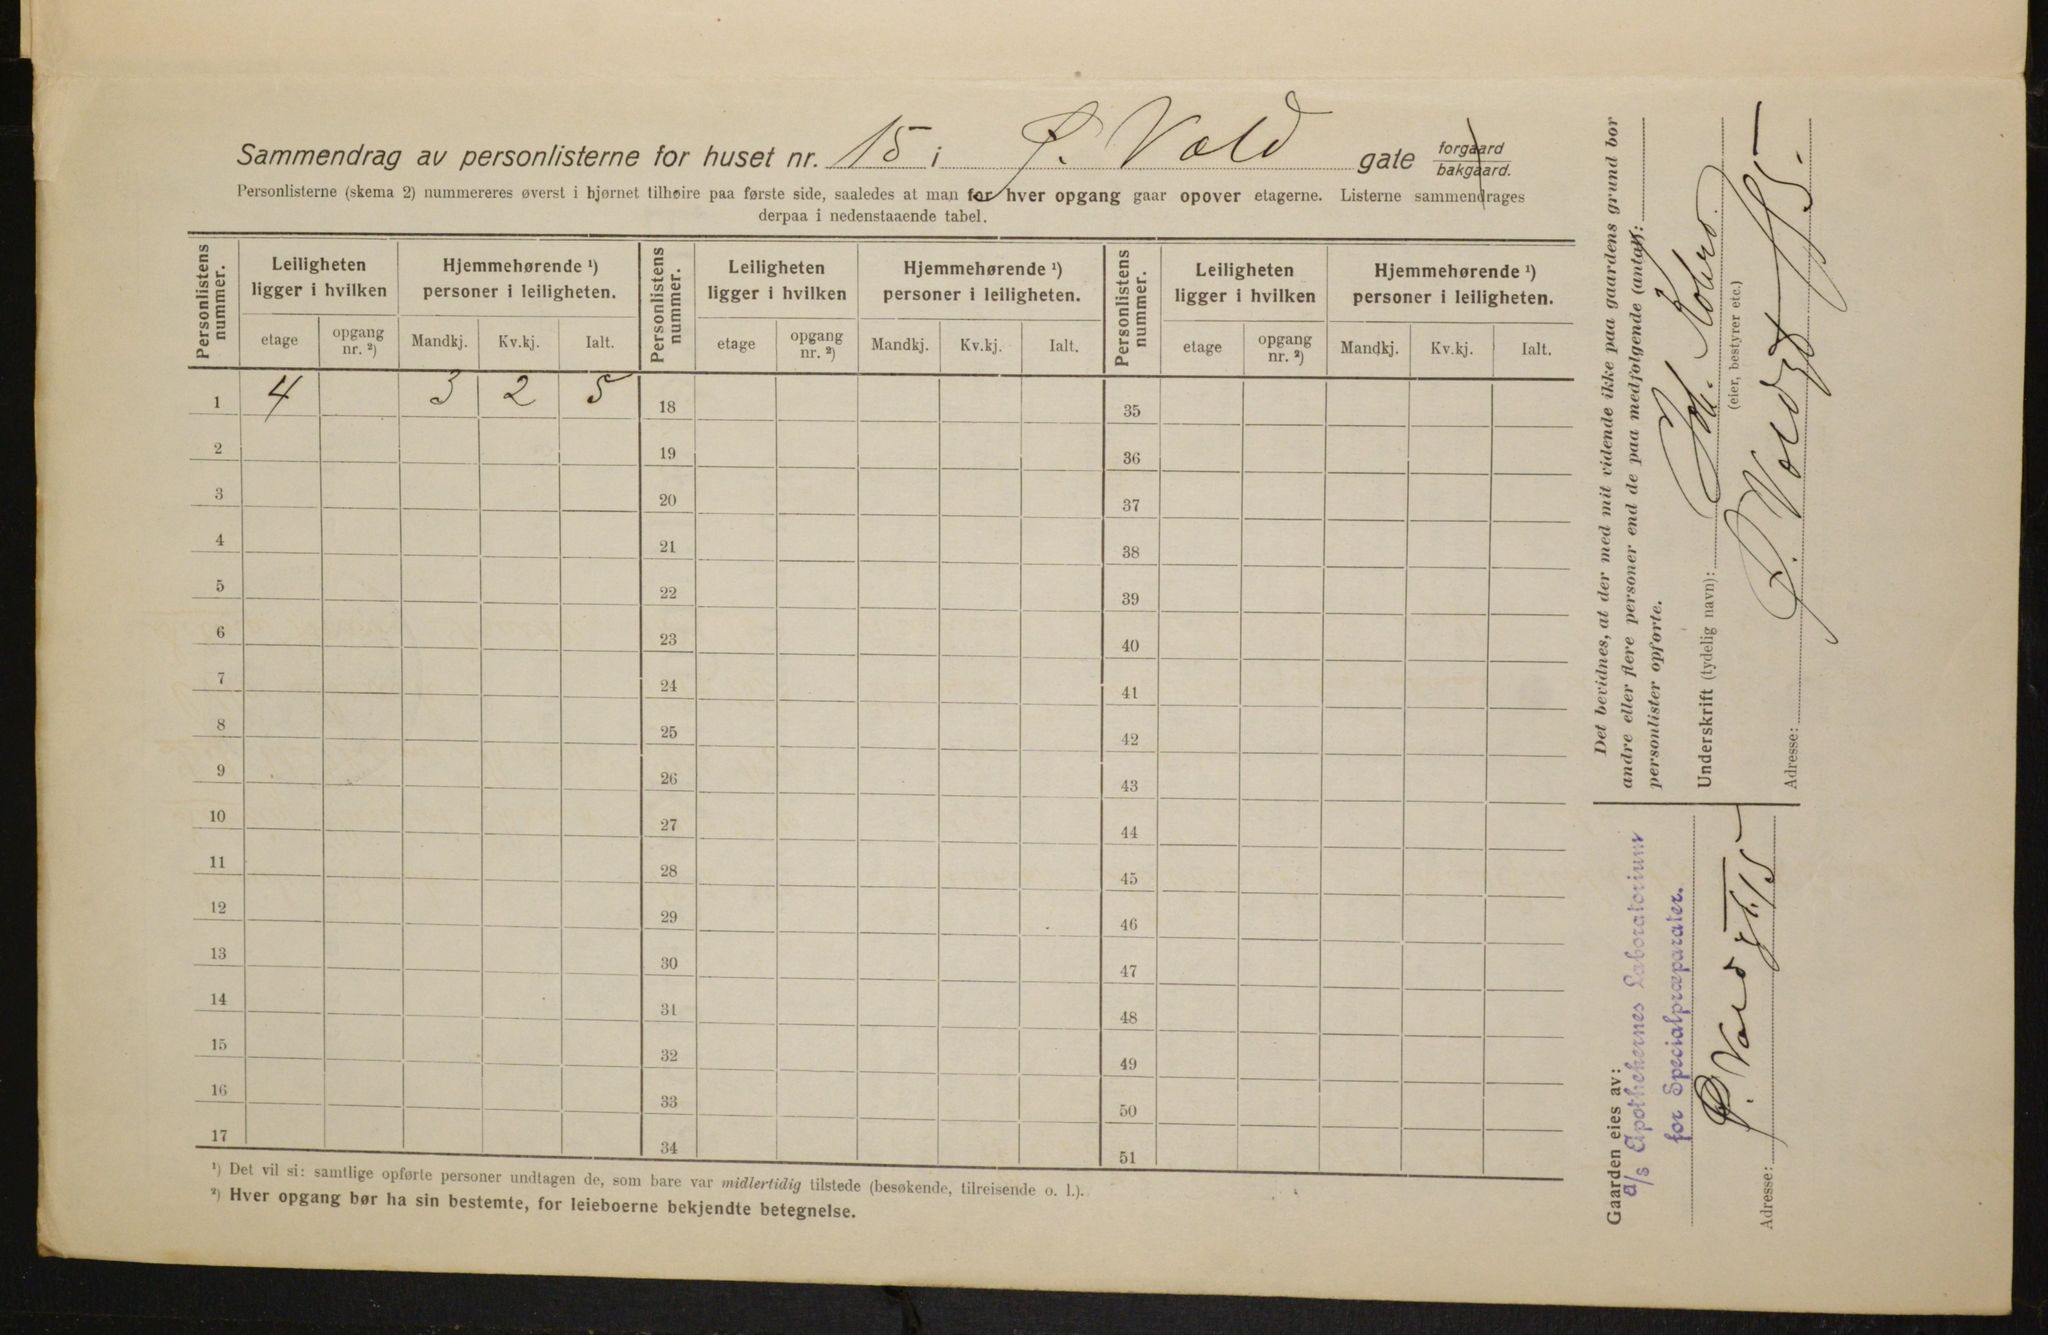 Sammendrag av personlisterne for huset nr. 15 i Ø. Vold gate forgaard
bakgaard.
Personlisterne (skema 2) nummereres øverst i hjørnet tilhøire paa første side, saaledes at man for hver opgang gaar opover etagerne. Listerne sammendrages
derpaa i nedenstaaende tabel.
Personlistens nummer. Leiligheten ligger i hvilken Hjemmehørende ¹) personer i leiligheten. Personlistens nummer. Leiligheten ligger i hvilken Hjemmehørende ¹) personer i leiligheten. Personlistens nummer. Leiligheten ligger i hvilken Hjemmehørende ¹) personer i leiligheten.
etage opgang nr. ²) Mandkj. Kv.kj. Ialt. etage opgang nr. ²) Mandkj. Kv.kj. Ialt. etage opgang nr. ²) Mandkj. Kv.kj. Ialt.
1 4 3 2 5 18 35
2 19 36
3 20 37
4 21 38
5 22 39
6 23 40
7 24 41
8 25 42
9 26 43
10 27 44
11 28 45
12 29 46
13 30 47
14 31 48
15 32 49
16 33 50
17 34 51
¹) Det vil si: samtlige opførte personer undtagen de, som bare var midlertidig tilstede (besøkende, tilreisende o. l.).
²) Hver opgang bør ha sin bestemte, for leieboerne bekjendte betegnelse.
Det bevidnes, at der med mit vidende ikke paa gaardens grund bor
andre eller flere personer end de paa medfølgende (antal):
personlister opførte.
Underskrift (tydelig navn):
(eier, bestyrer etc.)
Adresse: Ø. Voldgt 15.
Gaarden eies av:
A/s Apothekernes Laboratorium
for Specialpræparater.
Adresse: Ø. Voldgt. 15